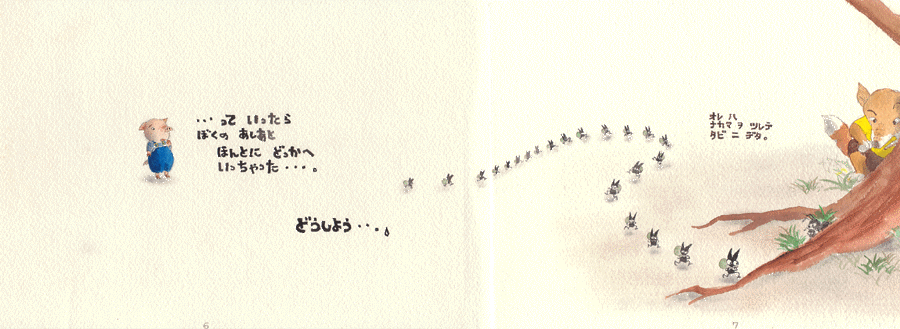 ・・・って いったら
ぼくの あしあと
ほんとに どっかへ
いっちゃった・・・。
どうしよう・・・。
オレ ハ
ナカマ ヲ ツレテ
タビ ニ デタ。
6
7